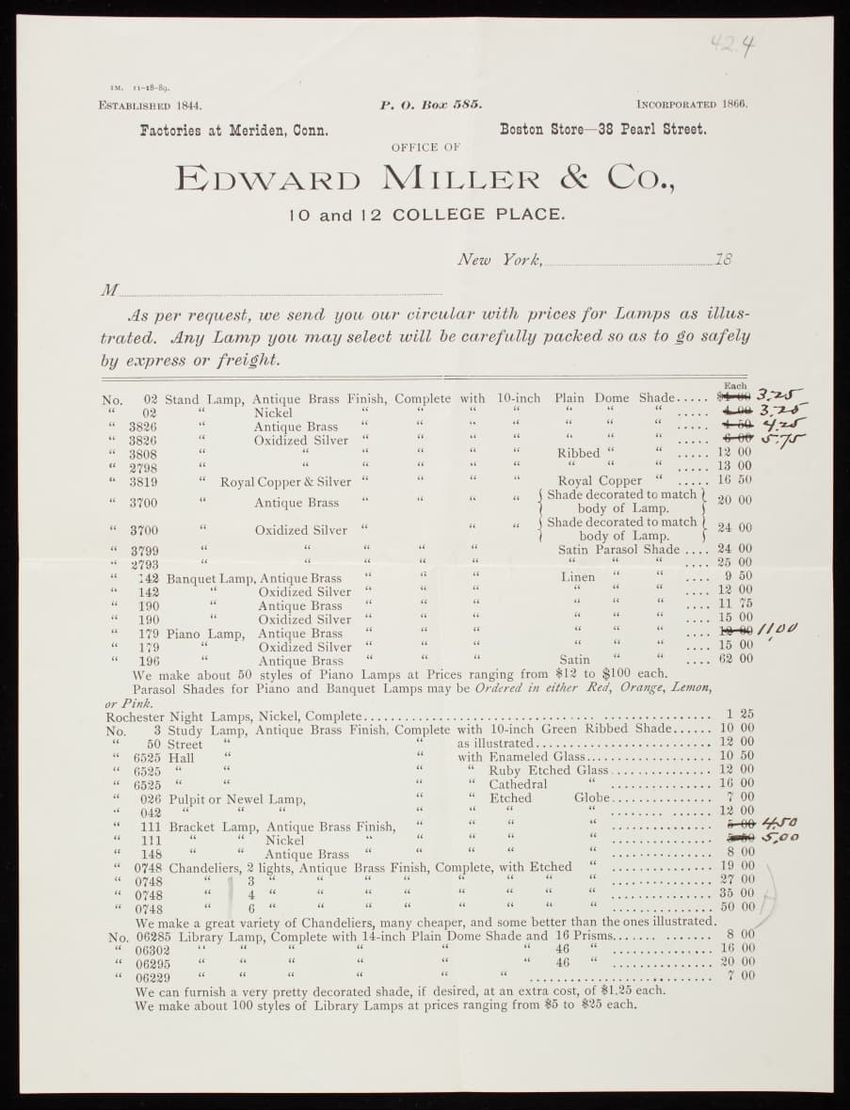 42.4
1M. 11-18-89.
ESTABLISHED 1844. P. O. Box 585. INCORPORATED 1866.
Factories at Meriden, Conn. Boston Store—38 Pearl Street.
OFFICE OF
EDWARD MILLER & CO.,
10 and 12 COLLEGE PLACE.
New York, 18
M
As per request, we send you our circular with prices for Lamps as illus-
trated. Any Lamp you may select will be carefully packed so as to go safely
by express or freight.
Each
No. 02 Stand Lamp, Antique Brass Finish, Complete with 10-inch Plain Dome Shade..... $4 00 3.25
" 02 " Nickel " " " " " " " ..... 4 00 3.25
" 3826 " Antique Brass " " " " " " " ..... 4 50 4.25
" 3826 " Oxidized Silver " " " " " " " ..... 6 00 5.75
" 3808 " " " " " " Ribbed " " ..... 12 00
" 2798 " " " " " " " " " ..... 13 00
" 3819 " Royal Copper & Silver " " " " Royal Copper " ..... 16 50
" 3700 " Antique Brass " " " " { Shade decorated to match body of Lamp. } 20 00
" 3700 " Oxidized Silver " " " { Shade decorated to match body of Lamp. } 24 00
" 3799 " " " " " Satin Parasol Shade .... 24 00
" 2793 " " " " " " " " .... 25 00
" 142 Banquet Lamp, Antique Brass " " " Linen " " .... 9 50
" 142 " Oxidized Silver " " " " " " .... 12 00
" 190 " Antique Brass " " " " " " .... 11 75
" 190 " Oxidized Silver " " " " " " .... 15 00
" 179 Piano Lamp, Antique Brass " " " " " " .... 12 00 11 00
" 179 " Oxidized Silver " " " " " " .... 15 00
" 196 " Antique Brass " " " Satin " " .... 62 00
We make about 50 styles of Piano Lamps at Prices ranging from $12 to $100 each.
Parasol Shades for Piano and Banquet Lamps may be Ordered in either Red, Orange, Lemon,
or Pink.
Rochester Night Lamps, Nickel, Complete........ 1 25
No. 3 Study Lamp, Antique Brass Finish, Complete with 10-inch Green Ribbed Shade...... 10 00
" 50 Street " " " as illustrated........ 12 00
" 6525 Hall " " with Enameled Glass........ 10 50
" 6525 " " " " Ruby Etched Glass........ 12 00
" 6525 " " " " Cathedral " ........ 16 00
" 026 Pulpit or Newel Lamp, " " Etched Globe........ 7 00
" 042 " " " " " " " ........ 12 00
" 111 Bracket Lamp, Antique Brass Finish, " " " " ........ 5 00 4.50
" 111 " " Nickel " " " " " ........ 5,00
" 148 " " Antique Brass " " " " " ........ 8 00
" 0748 Chandeliers, 2 lights, Antique Brass Finish, Complete, with Etched " ........ 19 00
" 0748 " 3 " " " " " " " " ........ 27 00
" 0748 " 4 " " " " " " " " ........ 35 00
" 0748 " 6 " " " " " " " " ........ 50 00
We make a great variety of Chandeliers, many cheaper, and some better than the ones illustrated.
No. 06285 Library Lamp, Complete with 14-inch Plain Dome Shade and 16 Prisms........ 8 00
" 06302 " " " " " " 46 " ........ 16 00
" 06295 " " " " " " 46 " ........ 20 00
" 06229 " " " " " " ........ 7 00
We can furnish a very pretty decorated shade, if desired, at an extra cost, of $1.25 each.
We make about 100 styles of Library Lamps at prices ranging from $5 to $25 each.